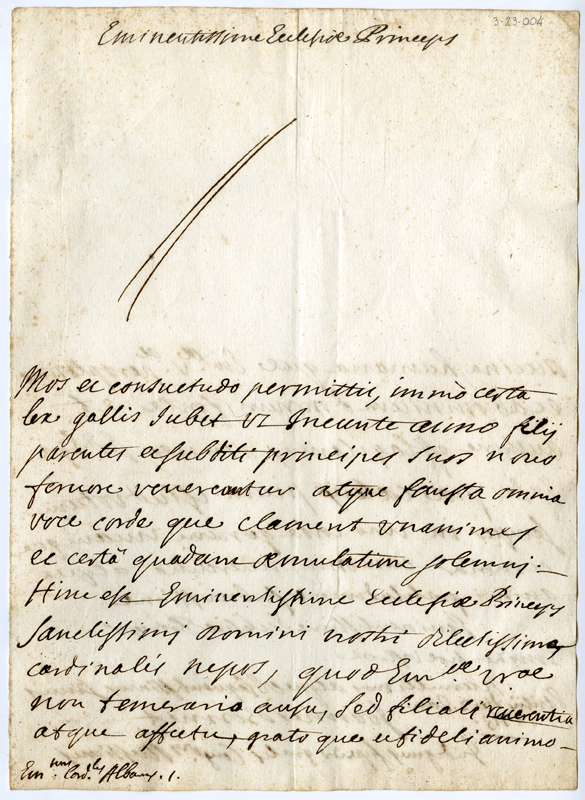 3-23-004
Eminentissime Ecclesiæ Princeps
Mos et consuetudo permittit, immò certa
lex gallis Iubet Vt Ineunte anno filij
parentes et subditi principes suos nouo
feruore venerentur atque fausta omnia
voce corde que clament vnanimes
et certâ quadam æmulatione solemni.-
Hinc est Eminentissime Ecclesiæ Princeps
Sanctissimi Domini nostri dilectissime
cardinalis nepos, quod Em.æ vræ
non temerario ausu, sed filiali reuerentia
atque affectu, grato que et fideli animo-
Em.mm Card.lem Albany. 1.